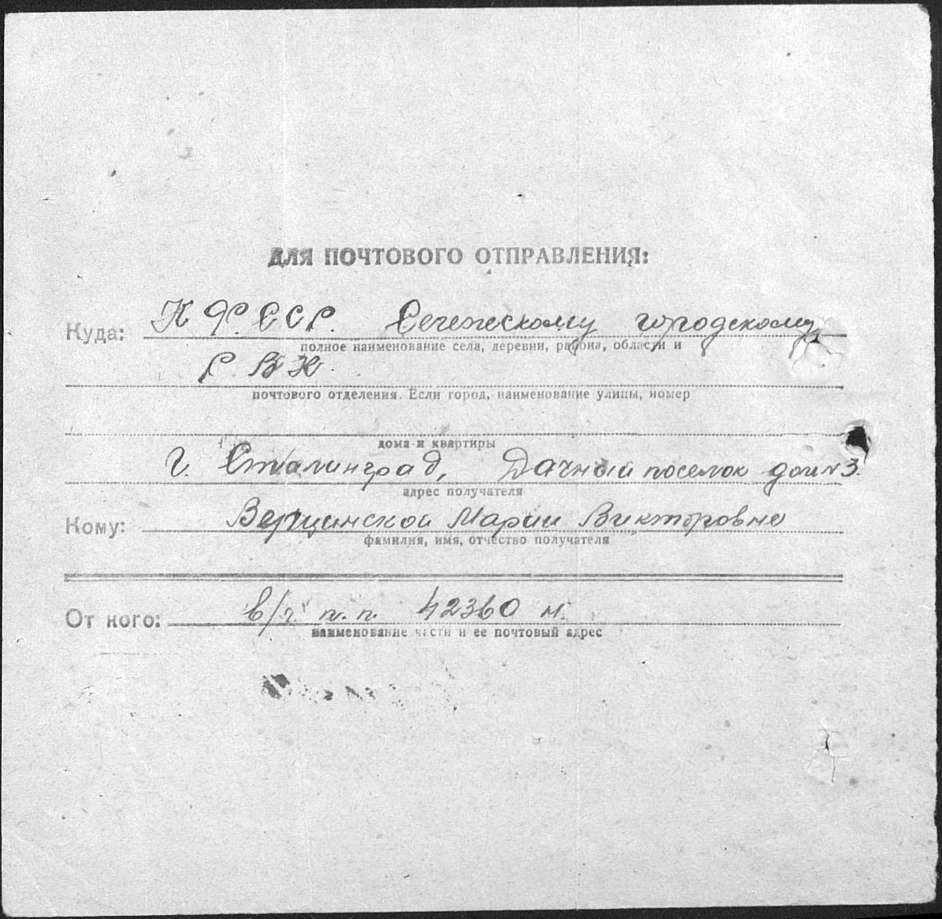 ДЛЯ ПОЧТОВОГО ОТПРАВЛЕНИЯ:
Куда: К Ф. ССР. Сегежскому городскому
полное наименование села, деревни, района, области и
Р В К.
почтового отделения. Если город, наименование улицы, номер
дома и квартиры
г. Сталинград, Дачный поселок дом №3.
адрес получателя
Кому: Вершинской Марии Викторовне
фамилия, имя, отчество получателя
От кого: в/ч п.п. 42360 н.
наименование части и ее почтовый адрес